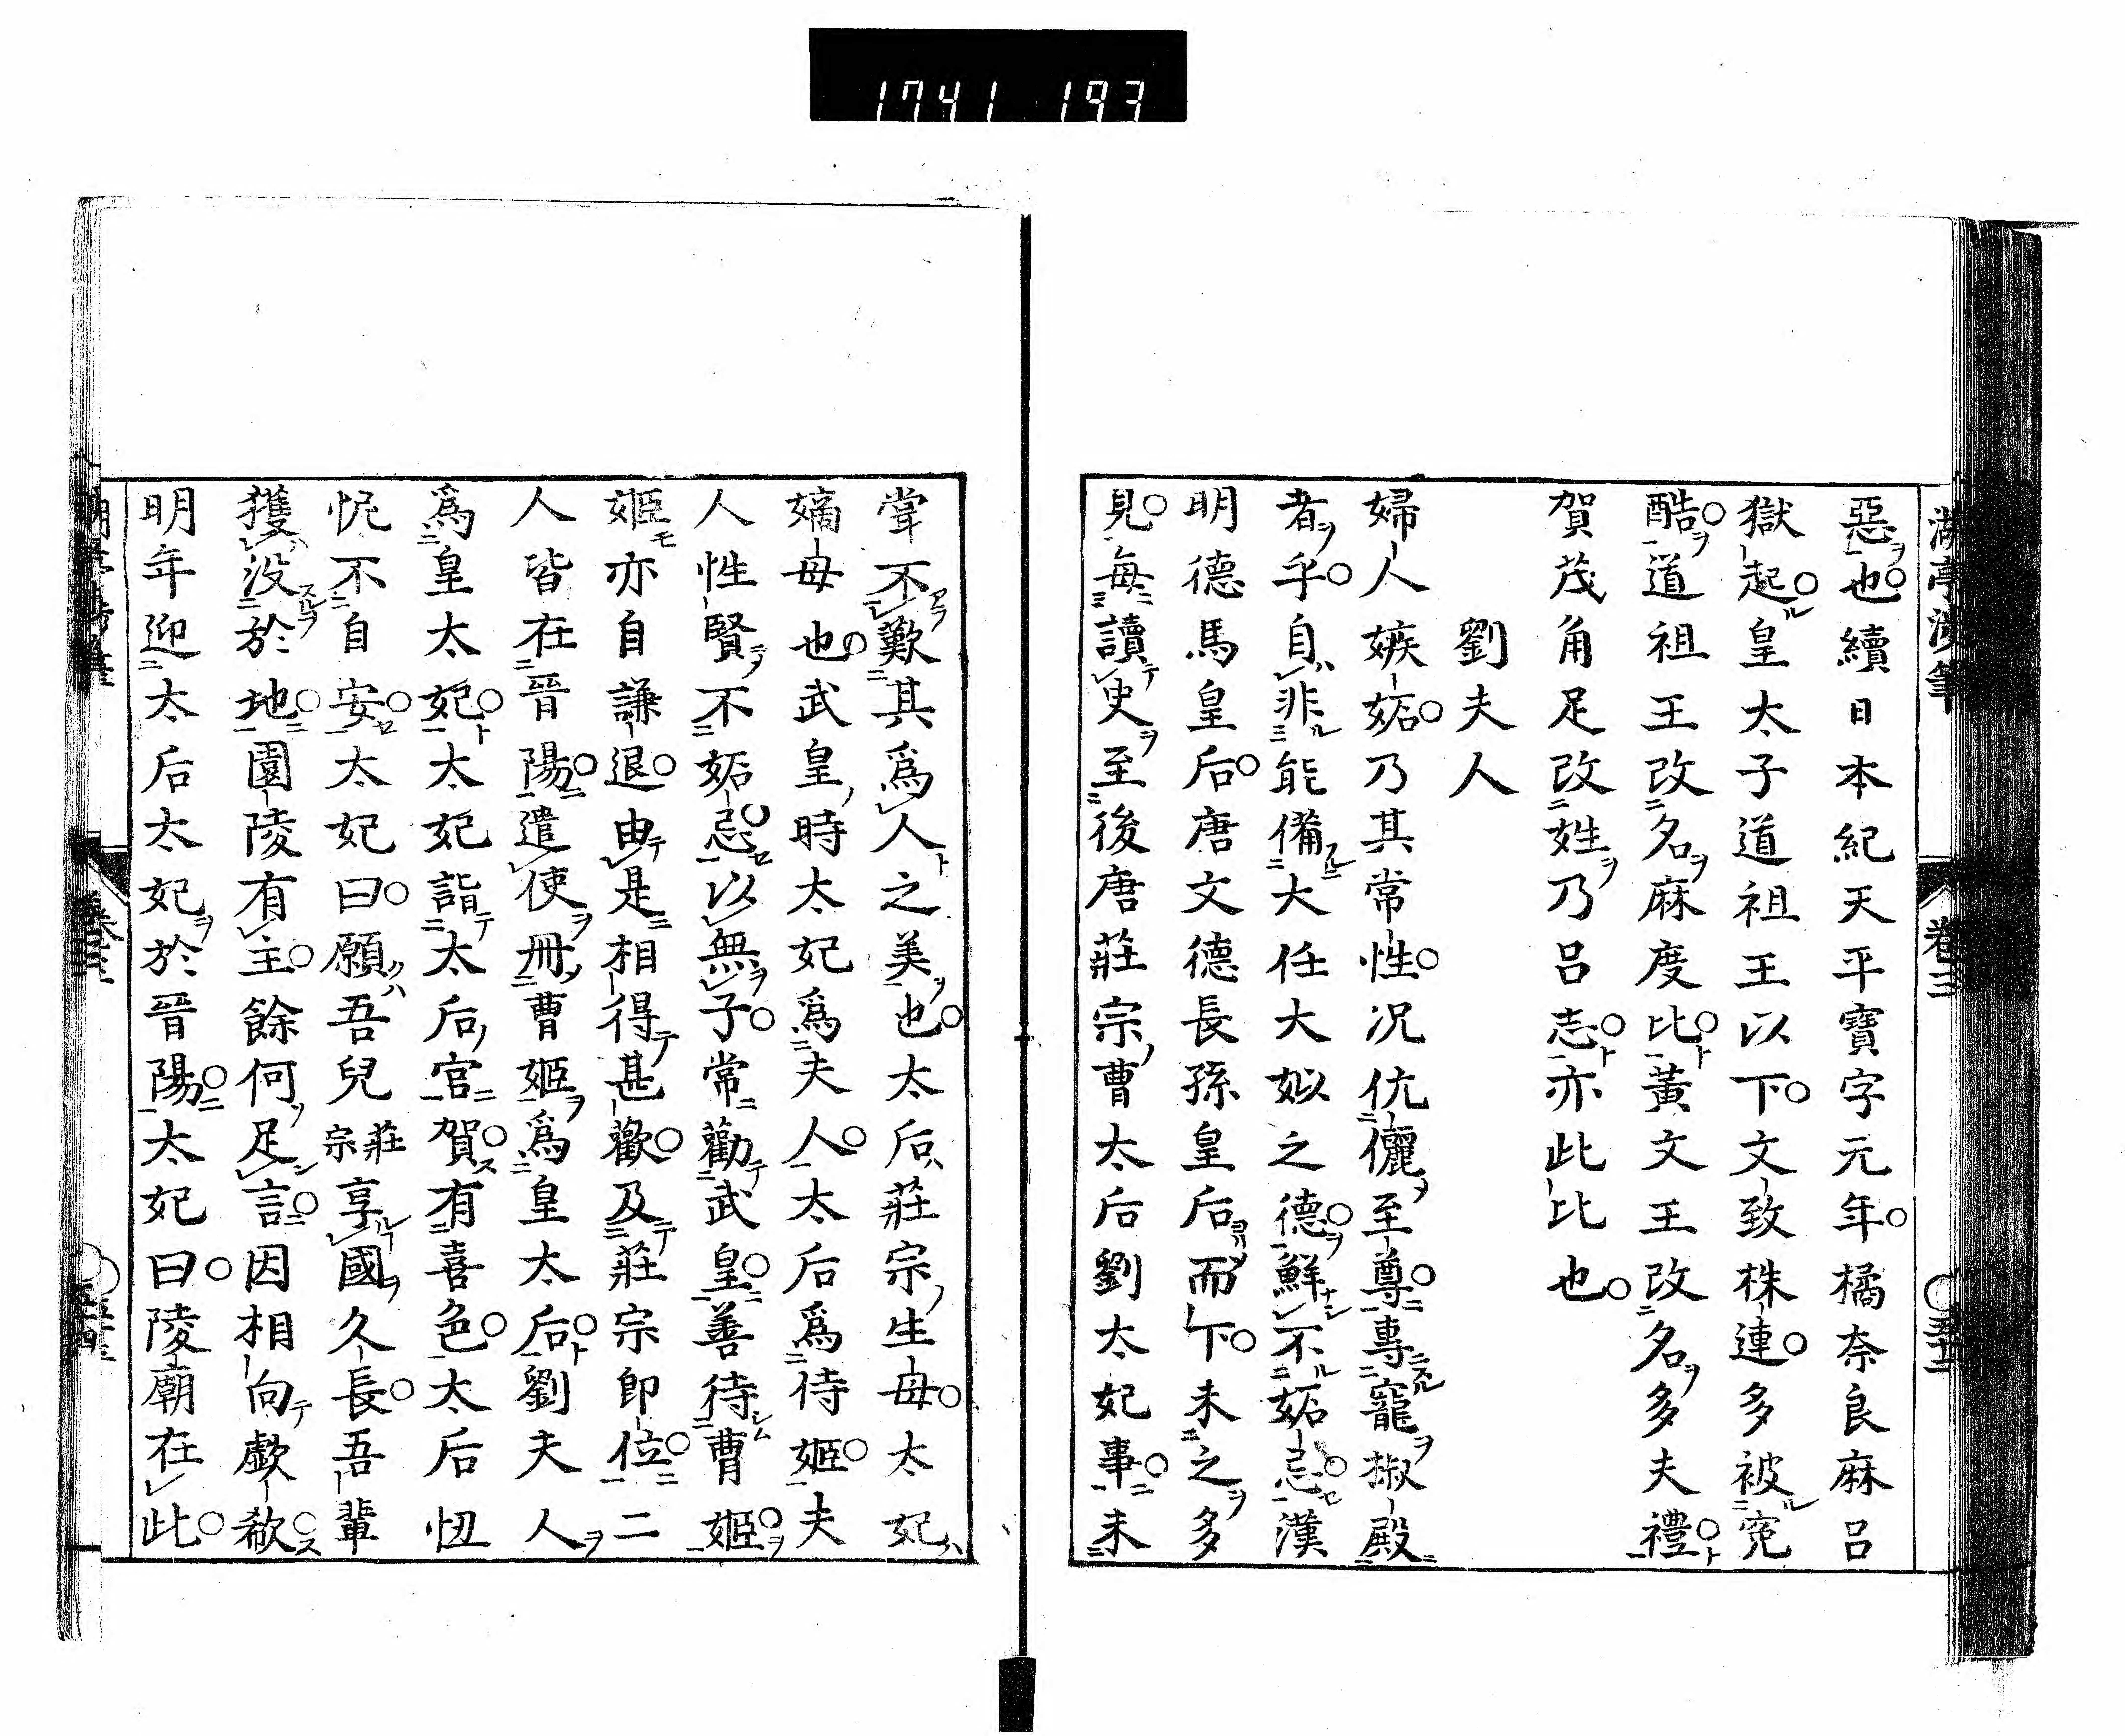 1741 193
惡也續日本紀天平寶字元年橘奈良麻呂
獄起皇太子道祖王以下文致株連多被寃
酷道祖王改名麻度比黃文王改名多夫禮
賀茂角足改姓乃呂志亦此比也
劉夫人
婦人嫉妬乃其常性况伉儷至尊專寵椒殿
者乎自非能備大任大姒之德鮮不妬忌漢
明德馬皇后唐文德長孫皇后而下未之多
見每讀史至後唐莊宗曹太后劉太妃事未
甞不歎其爲人之美也太后莊宗生母太妃
嫡母也武皇時太妃爲夫人太后爲待姬夫
人性賢不妬忌以無子常勸武皇善待曹姬
姬亦自謙退由是相得甚歡及莊宗即位二
人皆在晉陽遣使冊曹姬爲皇太后劉夫人
爲皇太妃太妃詣太后宮賀有喜色太后忸
怩不自安太妃曰願吾兒莊宗享國久長吾輩
獲没於地園陵有主餘何足言因相向歔欷
明年迎太后太妃於晉陽太妃曰陵廟在此
湖亭涉筆
卷三